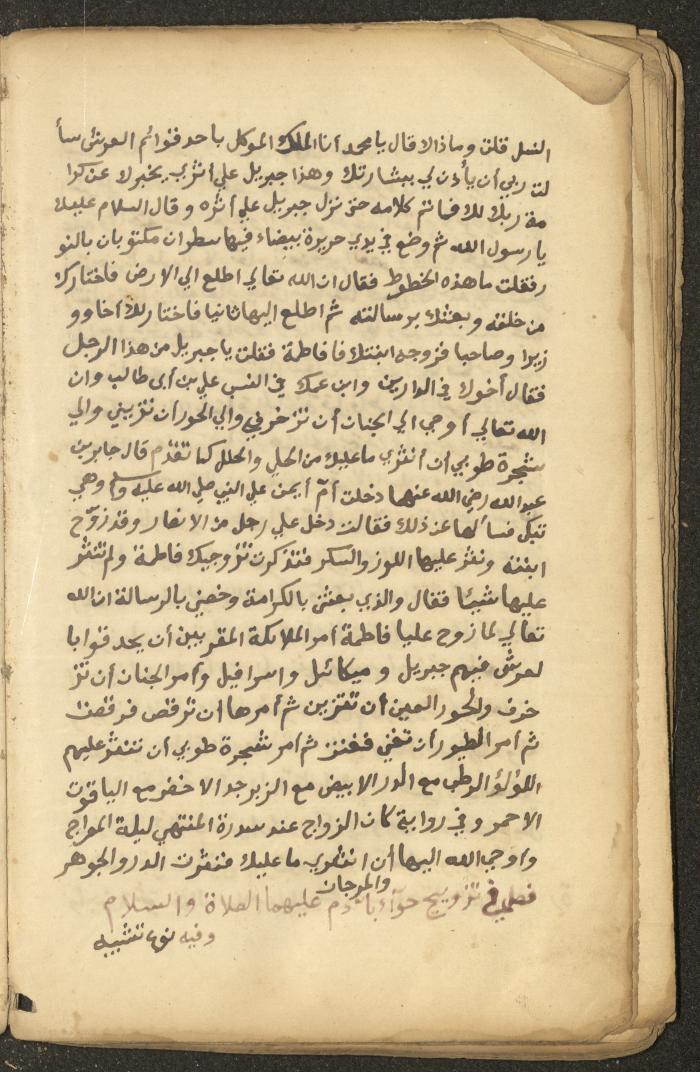 النسل قلت وماذالا قال يا محمد أنا الملك الموكل باحد قوائم العرش سأ
لت ربي أن يأذن لي ببشارتك وهذا جبريل علي أثري يخبرك عن كرا
مة ربك لك فما تم كلامه حتى نزل جبريل علي أثره وقال السلام عليك
يا رسول الله ثم وضع في يدي حريرة بيضاء فيها سطران مكتوبان بالنو
ر فقلت ما هذه الخطوط فقال ان الله تعالي اطلع الي الارض فاختارك
من خلقه وبعثك برسالته ثم اطلع اليها ثانيا فاختار لك أخا وو
زيرا وصاحبا فزوجه ابنتك فاطمة فقلت يا جبريل من هذا الرجل
فقال أخوك في الدارين وابن عمك في النسب علي بن أبى طالب وان
الله تعالي أوحي الي الجنان أن تزخرفي والي الحور أن تزيني والي
شجرة طوبي أن أنثري ما عليك من الحلي والحلل كما تقدم قال جابر بن
عبد الله رضي الله عنهما دخلت أم أيمن علي النبي صلي الله عليه وسلم وهي
تبكي فسألها عن ذلك فقالت دخل علي رجل من الانصار وقد زوّج
ابنته ونثر عليها اللوز والسكر فتذكرت تزويجك فاطمة ولم تنثر
عليها شيئا فقال والذي بعثني بالكرامة وخصني بالرسالة ان الله
تعالي لما زوج عليا فاطمة أمر الملائكة المقربين أن يحدقوا با
لعرش فيهم جبريل وميكائل واسرافيل وأمر الجنان أن تز
خرف والحور العين أن تتزين ثم أمرها ان ترقص فرقصت
ثم أمر الطيور أن تغني فغنت ثم أمر شجرة طوبي ان تنثر عليهم
اللؤلؤ الرطب مع الدر الابيض مع الزبرجد الاخضر مع الياقوت
الاحمر وفي رواية كان الزواج عند سدرة المنتهي ليلة المعراج
وأوحي الله اليها أن انثري ما عليك فنثرت الدر والجوهر
والمرجان
فصل في تزويج حوآء بآدم عليهما الصلاة والسلام
وفيه تشبيه